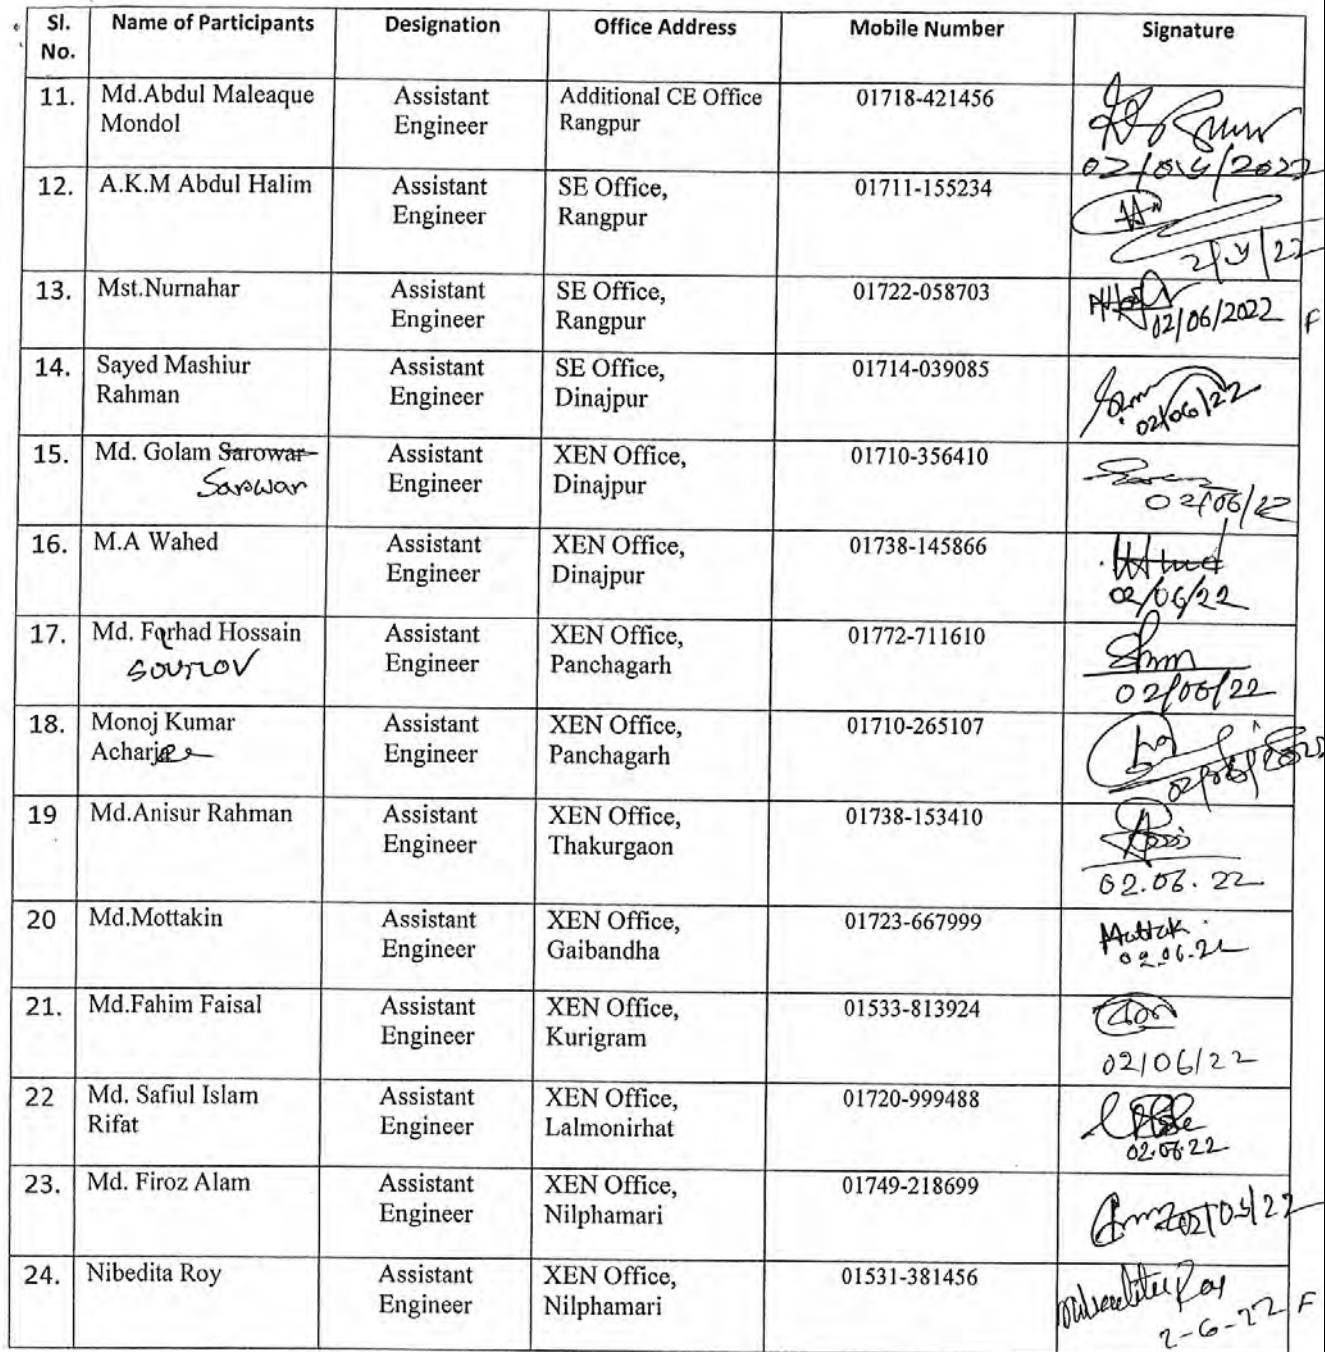 Sl. No. Name of Participants Designation Office Address Mobile Number Signature
11. Md.Abdul Maleaque Mondol Assistant Engineer Additional CE Office Rangpur 01718-421456
12. A.K.M Abdul Halim Assistant Engineer SE Office, Rangpur 01711-155234
13. Mst.Nurnahar Assistant Engineer SE Office, Rangpur 01722-058703 02/06/2022 F
14. Sayed Mashiur Rahman Assistant Engineer SE Office, Dinajpur 01714-039085 02/06/22
15. Md. Golam Sarowar Sarwar Assistant Engineer XEN Office, Dinajpur 01710-356410 02/06/22
16. M.A Wahed Assistant Engineer XEN Office, Dinajpur 01738-145866 02/06/22
17. Md. Farhad Hossain SOUROV Assistant Engineer XEN Office, Panchagarh 01772-711610 02/06/22
18. Monoj Kumar Acharjee Assistant Engineer XEN Office, Panchagarh 01710-265107
19 Md.Anisur Rahman Assistant Engineer XEN Office, Thakurgaon 01738-153410 02.06.22
20 Md.Mottakin Assistant Engineer XEN Office, Gaibandha 01723-667999 02.06.22
21. Md.Fahim Faisal Assistant Engineer XEN Office, Kurigram 01533-813924 02/06/22
22 Md. Safiul Islam Rifat Assistant Engineer XEN Office, Lalmonirhat 01720-999488 02.06.22
23. Md. Firoz Alam Assistant Engineer XEN Office, Nilphamari 01749-218699
24. Nibedita Roy Assistant Engineer XEN Office, Nilphamari 01531-381456 Nibedita Roy 2-6-22 F